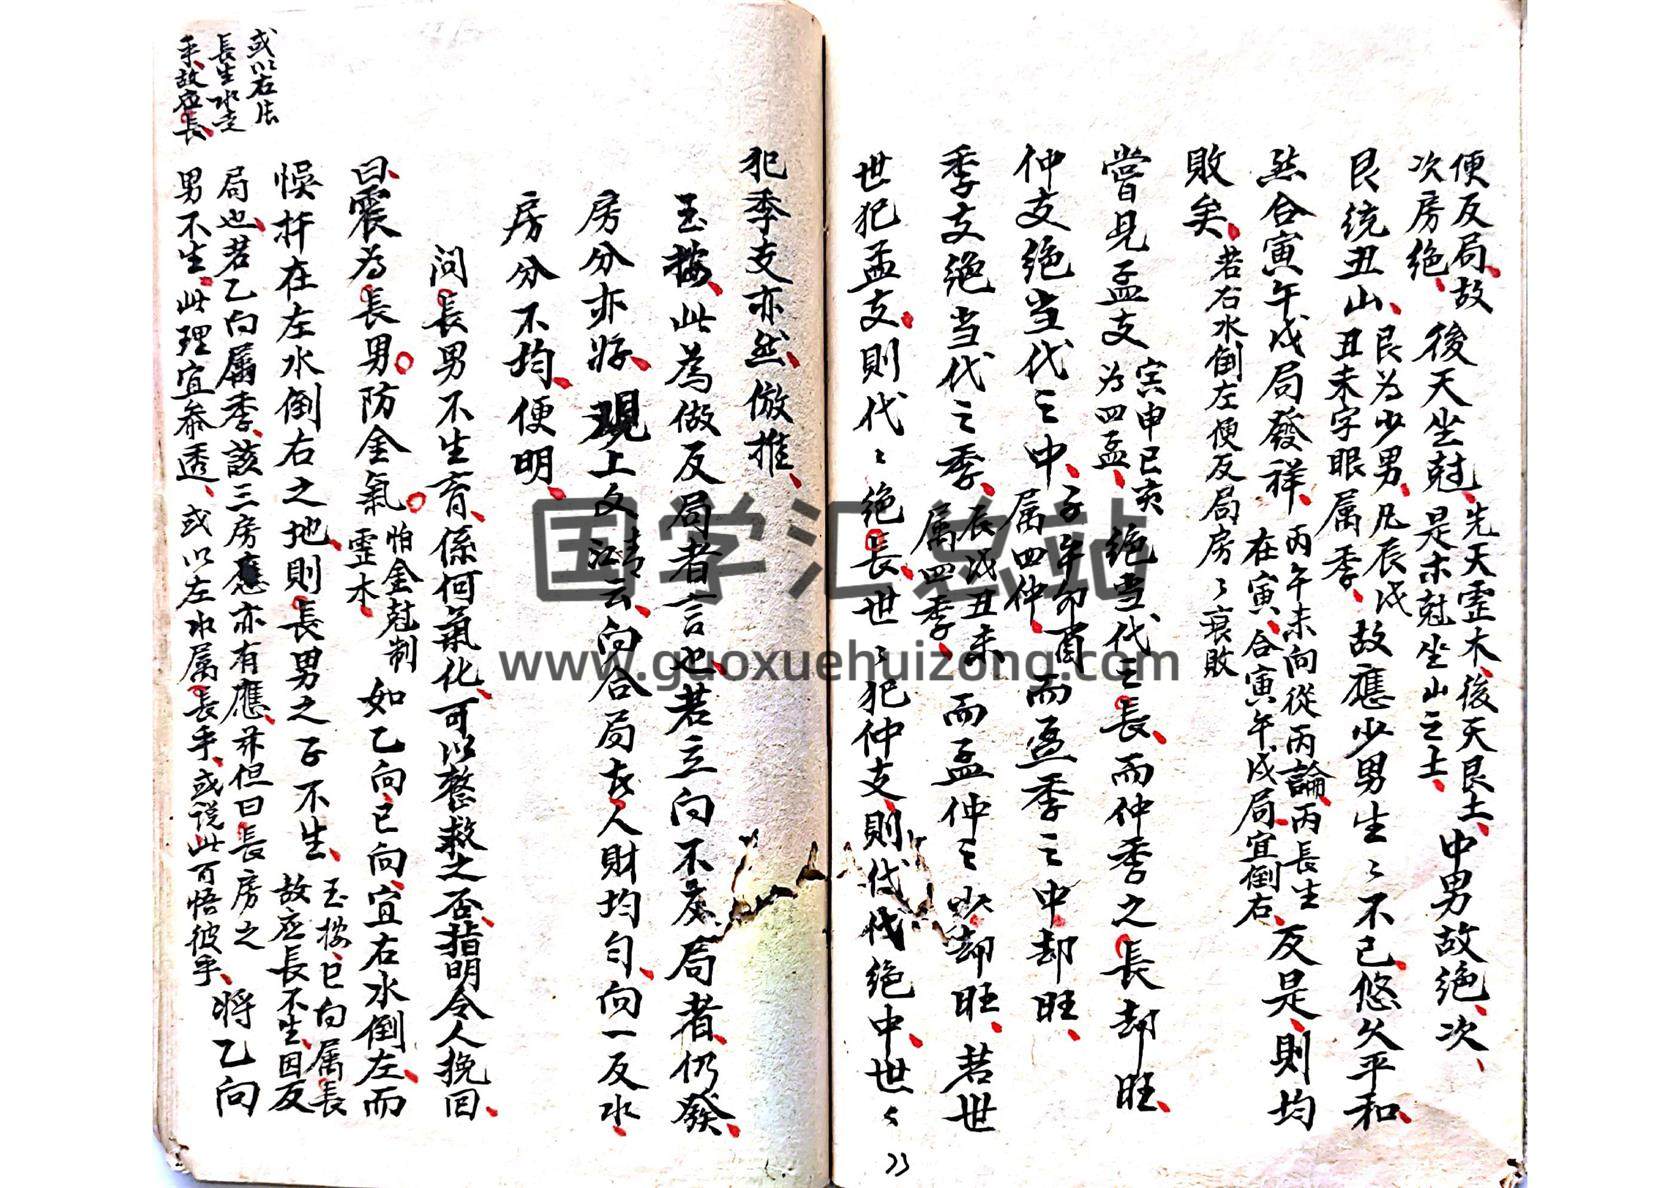 便反局故
次房絕
後天坐尅
先天震木後天艮土
是木尅坐山之土
中男故絕次
艮統丑山
艮為少男凡辰戌
丑未字眼屬季
故應少男生々不已悠久平和
然合寅午戌局發祥
丙午未向從丙論丙長生
在寅合寅午戌局宜倒右
反是則均
敗矣
若右水倒左便反局房々衰敗
嘗見孟支
寅申巳亥
為四孟
絕當代之長而仲季之長却旺
仲支絕当代之中
子午卯酉
屬四仲
而孟季之中却旺
季支絕当代之季
辰戌丑未
屬四季
而孟仲之少却旺若世
世犯孟支則代々絕長世々犯仲支則代代絕中世々
23
犯季支亦然倣推
玉按此為做反局者言也若立向不反局者仍發
房分亦好現上文清云向合局在人財均勻向一反水
房分不均便明
問長男不生育係何氣化可以整救之否指明令人挽回
曰震為長男防金氣
怕金尅制
震木
如乙向巳向宜右水倒左而
悞扦在左水倒右之地則長男之子不生
玉按巳向屬長
故应長不生因反
局也若乙向屬季該三房應亦有應并但曰長房之
男不生此理宜参透或以左水屬長乎或說此可悟彼乎
將乙向
或以右法
長生水走
乎故应長
国学汇总站
www.guoxuehuizong.com